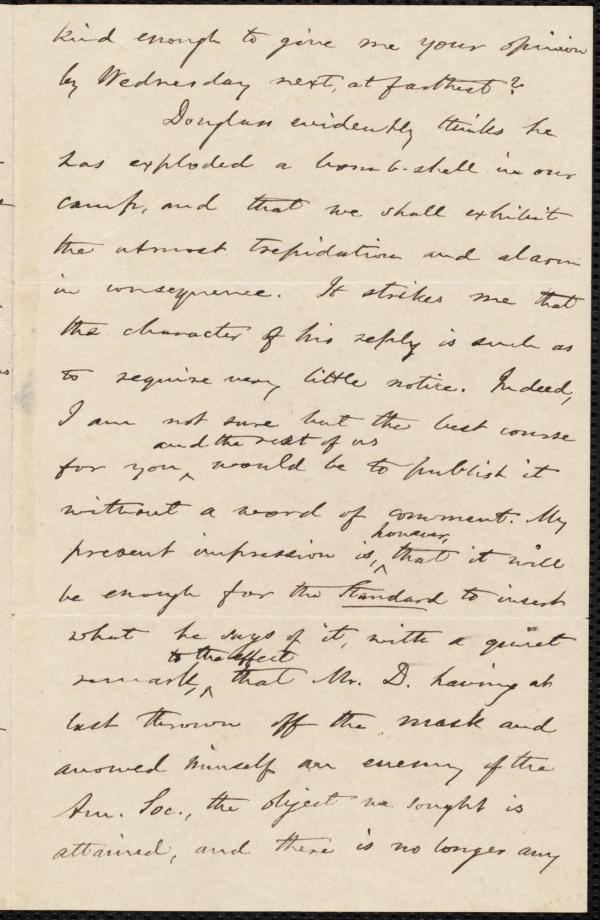 kind enough to give me your opinion
by Wednesday next, at farthest?
Douglass evidently thinks he
has exploded a bomb-shell in our
camp, and that we shall exhibit
the utmost trepidation and alarm
in consequence. It strikes me that
the character of his reply is such as
to require very little notice. Indeed,
I am not sure but the best course
and the rest of us
for you ^ would be to publish it
without a word of comment. My
however,
present impression is, ^ that it will
be enough for the Standard to insert
what he says of it, with a quiet
to the effect
remark, ^ that Mr. D. having at
last thrown off the mask and
avowed himself an enemy of the
Am. Soc., the object we sought is
attained, and there is no longer any